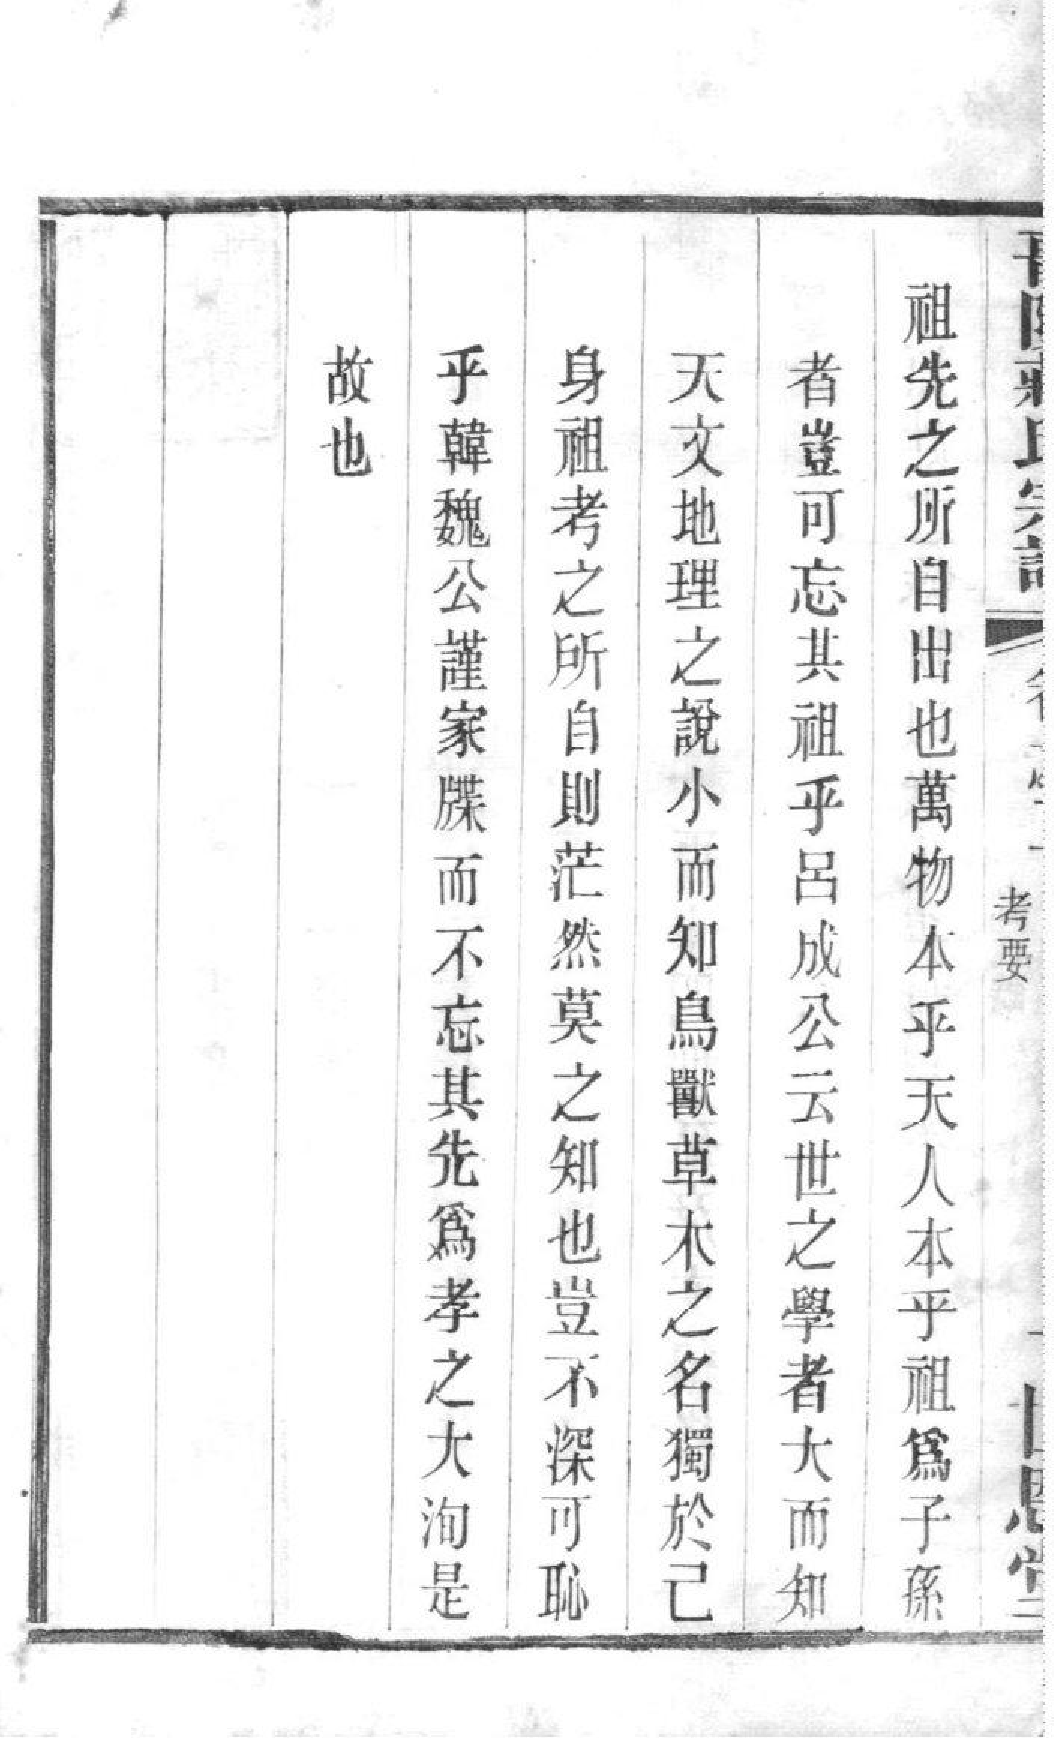 氏宗譜
考要
祖先之所自出也萬物本乎天人本乎祖爲子孫
者豈可忘其祖乎呂成公云世之學者大而知
天文地理之說小而知鳥獸草木之名獨於己
身祖考之所自則茫然莫之知也豈不深可恥
乎韓魏公謹家牒而不忘其先爲孝之大洵是
故也